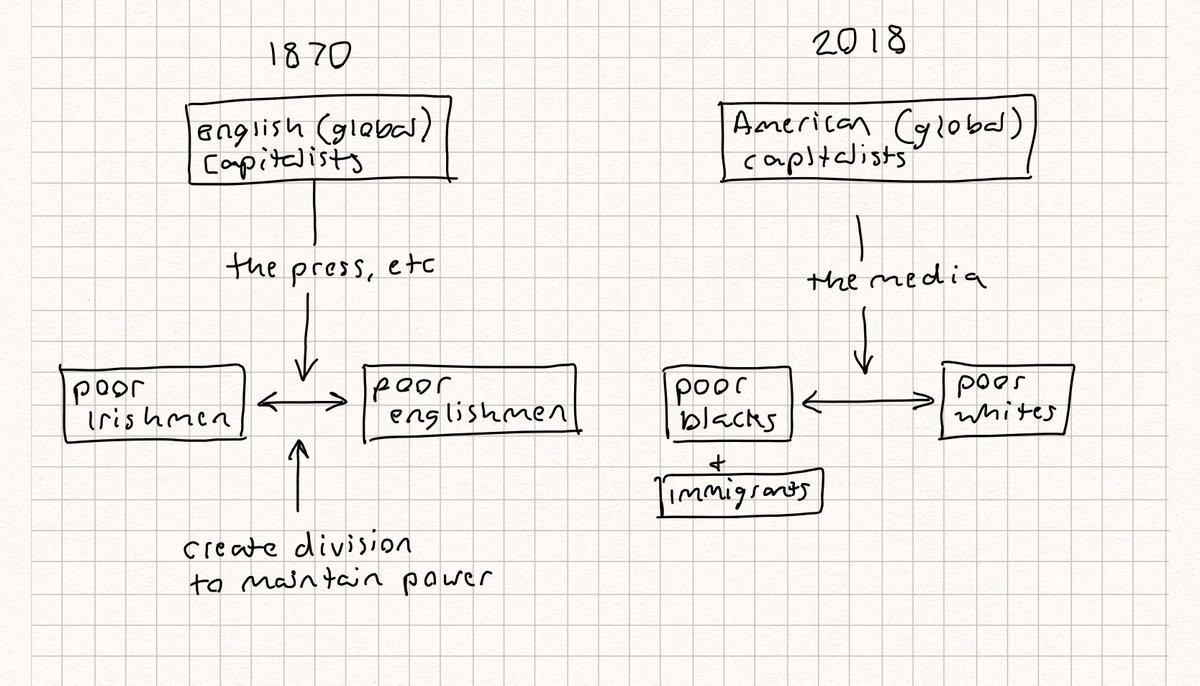 1870
english (global)
capitalists
the press, etc
poor
Irishmen
poor
englishmen
create division
to maintain power
2018
American (global)
capitalists
the media
poor
blacks
+
immigrants
poor
whites